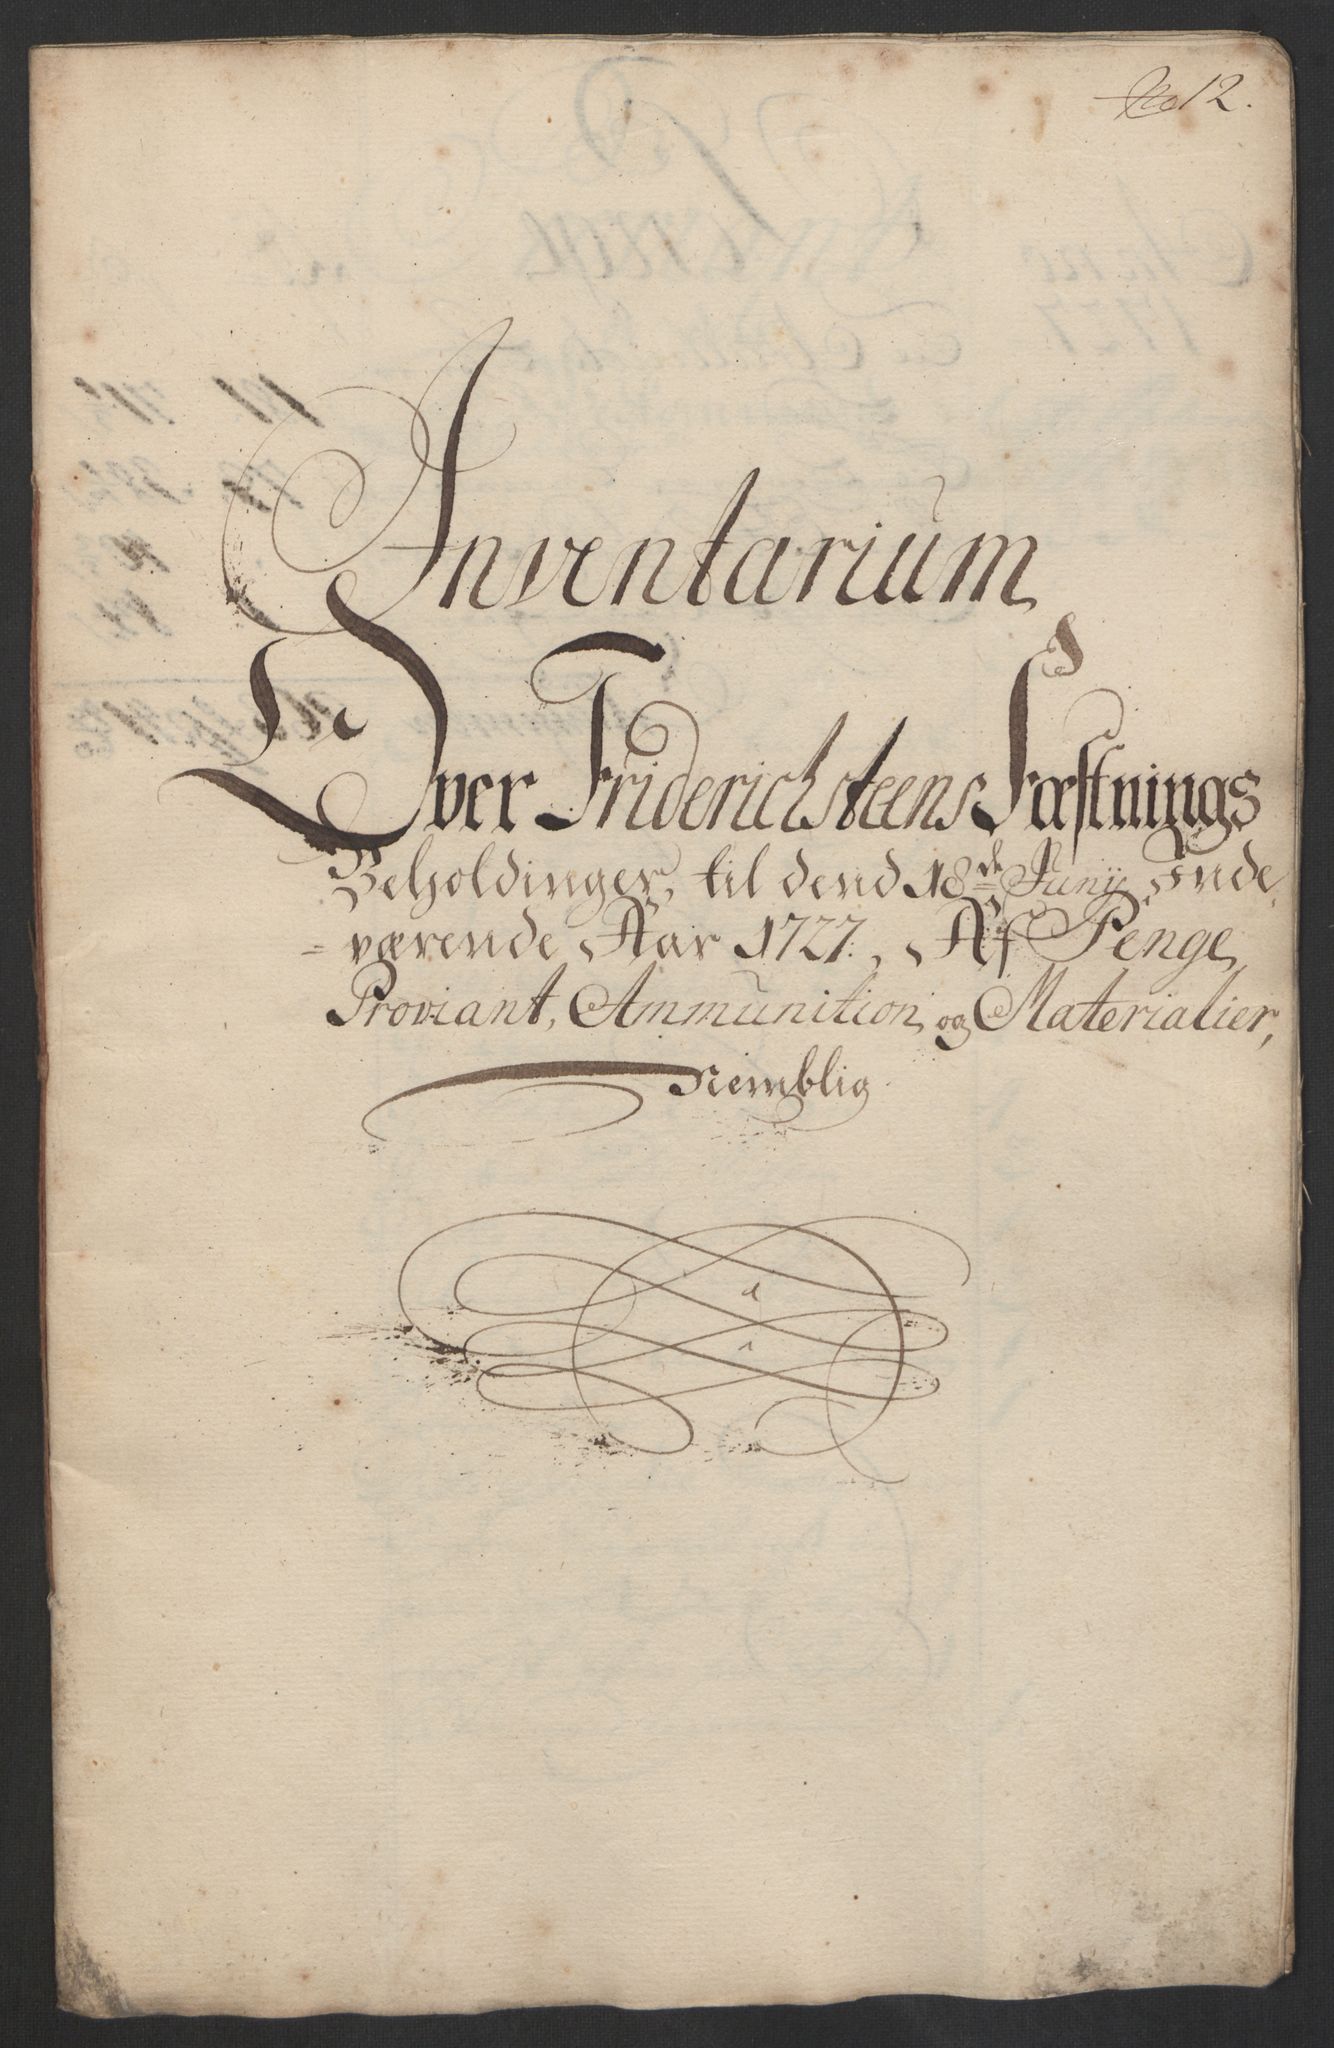 No 12.
Inventarium
Over Friderichsteens Fæstnings
Beholdinger, til dend 18de Junij Inde,
værende Aar 1727. Af Penge,
Proviant, Ammunition, og Materialier,
Nemblig